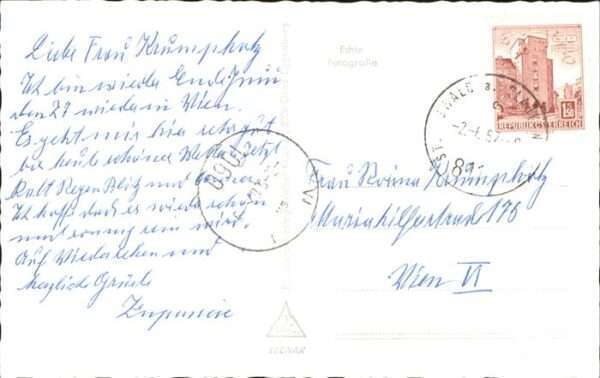 Liebe Frau Krumpholz
Ich bin wieder Ende Juni
den 27 wieder in Wien.
Es geht mir hier sehr gut
bis heute schönes Wetter Jetzt
kalt Regen Blitz und
Ich hoff daß es wieder schön
und sonnig sein wird.
Auf Wiedersehen und
herzliche Grüße
Echte
Fotografie
1.50
REPUBLIK ÖSTERREICH
ST.
8a
Frau
Mariahilferstrad 175
Wien VI